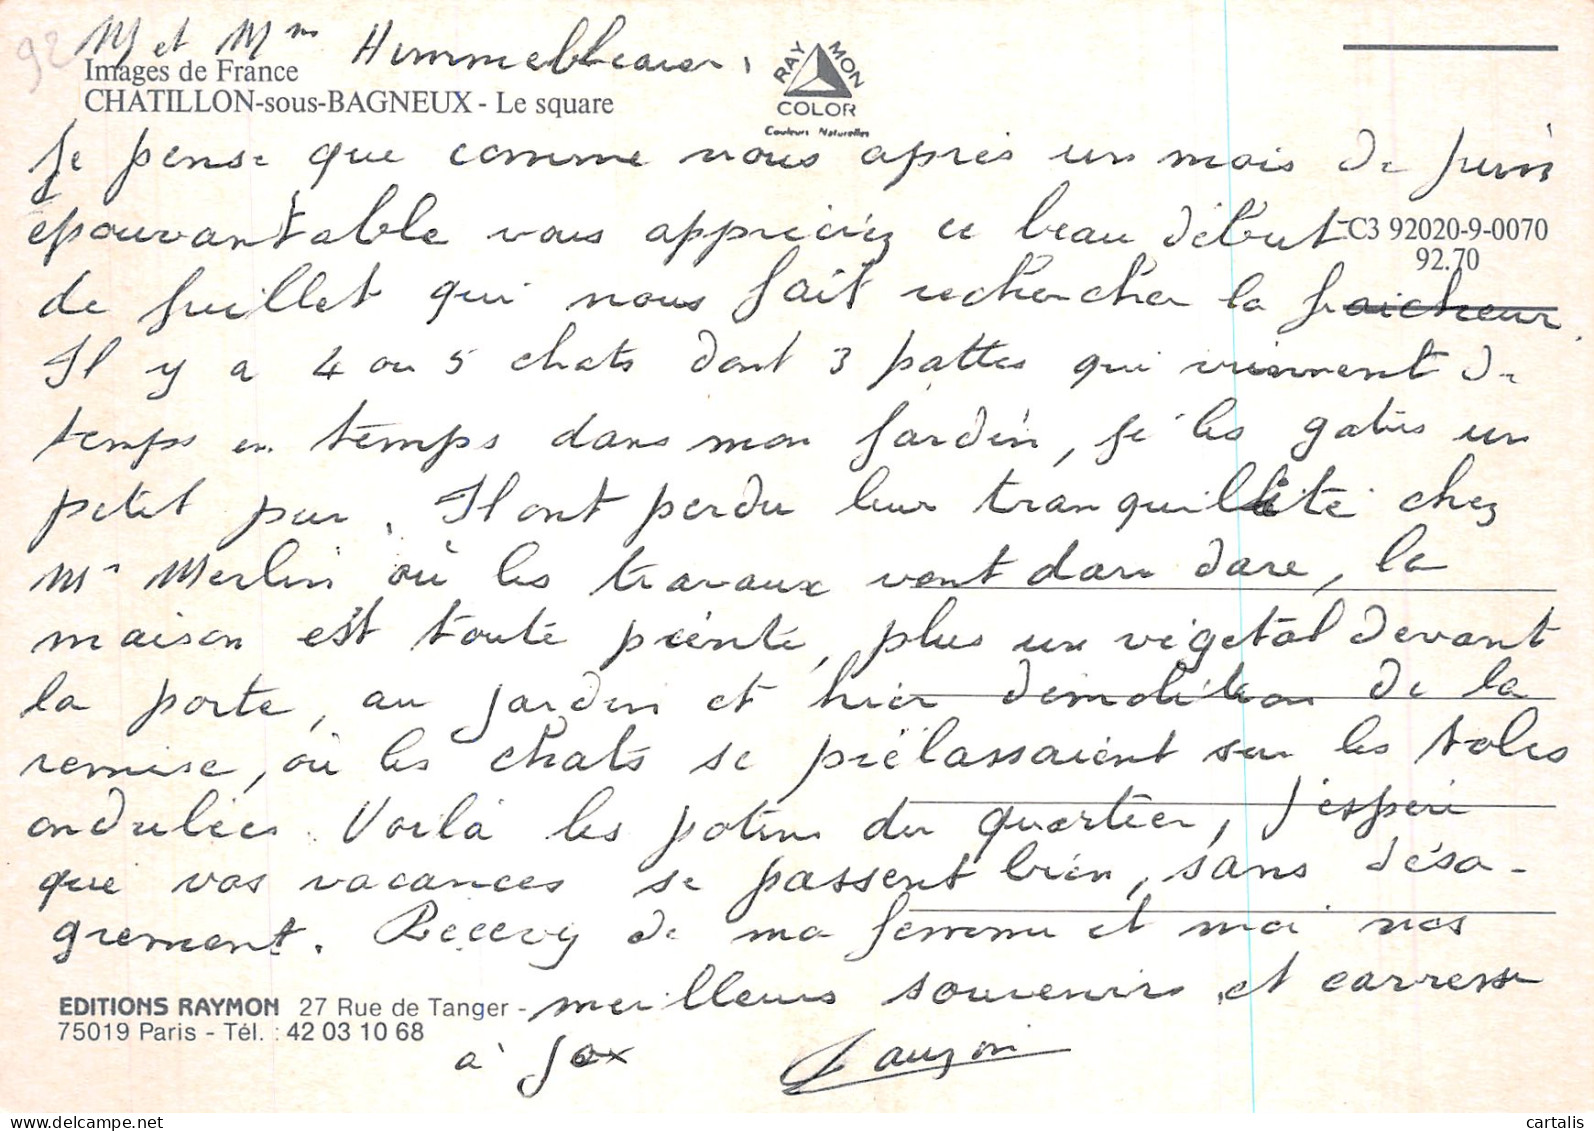 92
M et Mme Himmelbleauer.
Images de France
CHATILLON-sous-BAGNEUX - Le square
RAYMON
COLOR
Couleurs Naturelles
Je pense que comme nous après un mois de juin
épouvantable vous appréciez ce beau début
C3 92020-9-0070
92.70
de juillet qui nous fait rechercher la fraicheur.
Il y a 4 ou 5 chats dont 3 pattes qui viennent de
temps en temps dans mon jardin, je les gâtes un
petit peu. Il ont perdu leur tranquillité chez
Mr Merlin où les travaux vont dare dare, la
maison est toute peinte, plus un végétal devant
la porte, au jardin et hier démolition de la
remise, où les chats se prélassaient sur les toles
ondulées. Voilà les potins du quartier, j'espère
que vos vacances se passent bien, sans désa-
grement. Recevez de ma femme et moi nos
meilleurs souvenirs et carresse
EDITIONS RAYMON 27 Rue de Tanger -
75019 Paris - Tél. : 42 03 10 68
à Jox
cartalis